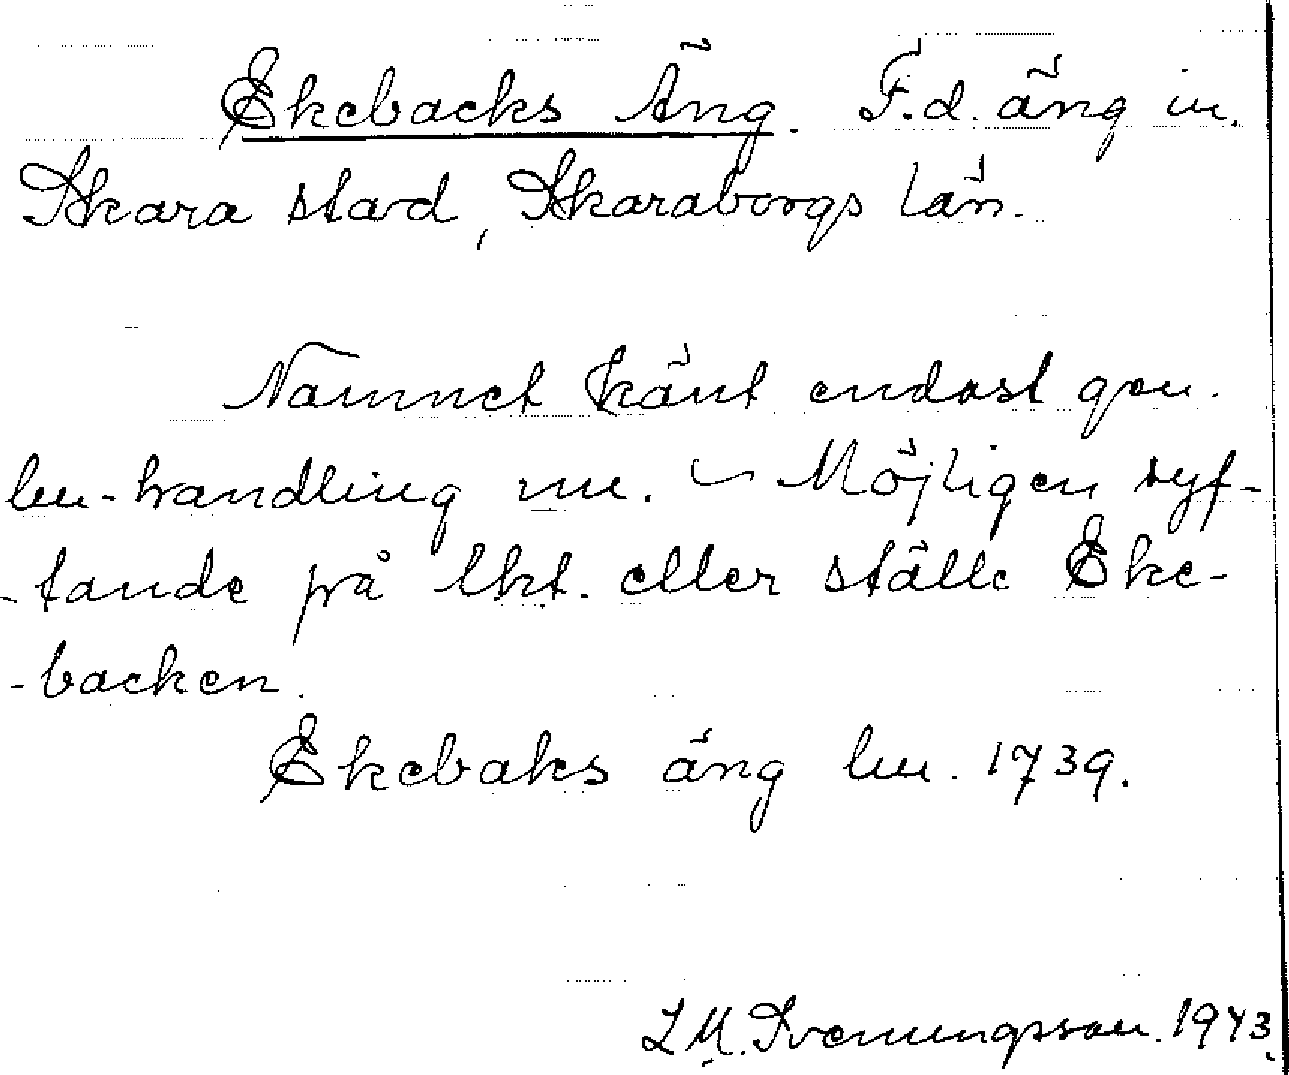 Ekebacks Äng. F.d. äng in.
Skara stad, Skaraborgs län.
Namnet känt endast gen.
lm-handling nu. – Möjligen syf-
-tande på lkt. eller ställe Eke-
-backen.
Ekebaks äng lm. 1739.
L M. Svenungsson. 1943.